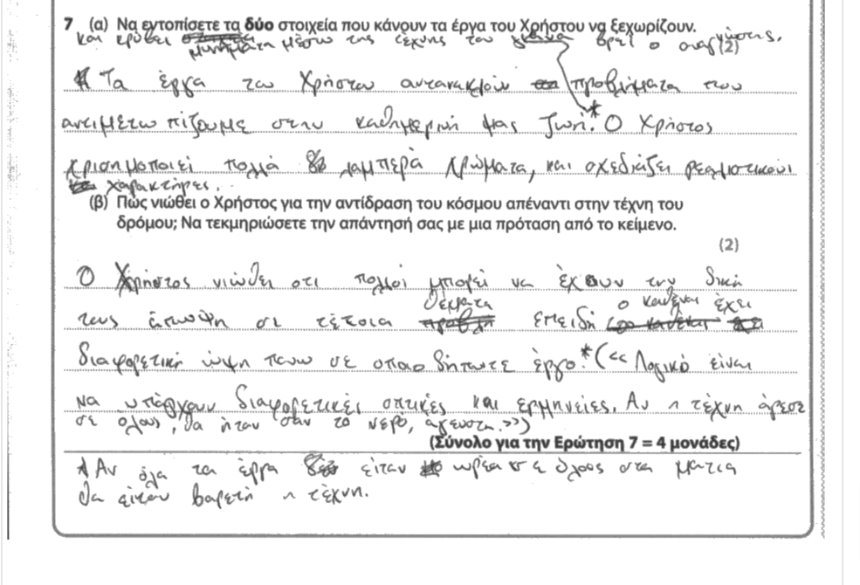 7 (α) Να εντοπίσετε τα δύο στοιχεία που κάνουν τα έργα του Χρήστου να ξεχωρίζουν.
και κρύβει μυνήματα μέσω της τέχνης του βρεί ο αναγνώστης.
(2)
Τα έργα του Χρήστου αντανακλούν προβλήματα που
αντιμέτωπίζουμε στην καθημερινή μας ζωή.* Ο Χρήστος
χρισημοποιεί πολλά λαμπερά χρώματα, και σχεδιάζει ρεαλιστικούς
χαρακτήρες.
(β) Πώς νιώθει ο Χρήστος για την αντίδραση του κόσμου απέναντι στην τέχνη του
δρόμου; Να τεκμηριώσετε την απάντησή σας με μια πρόταση από το κείμενο.
(2)
Ο Χρήστος νιώθει οτι πολλοί μπορεί να έχουν την δική
τους άποψη σε τέτοια θέματα επειδή ο καθένας έχει
διαφορετική όψη πανω σε οποιο δήποτε έργο.* («Λογικό είναι
να υπάρχουν διαφορετικές οπτικές και ερμηνείες. Αν η τέχνη άρεσε
σε όλους, θα ήταν σαν το νερό, άγευστη.»)
(Σύνολο για την Ερώτηση 7 = 4 μονάδες)
* Αν όλα τα έργα είταν ωρέα σε όλους στα ματια
θα είταν βαρετή η τέχνη.